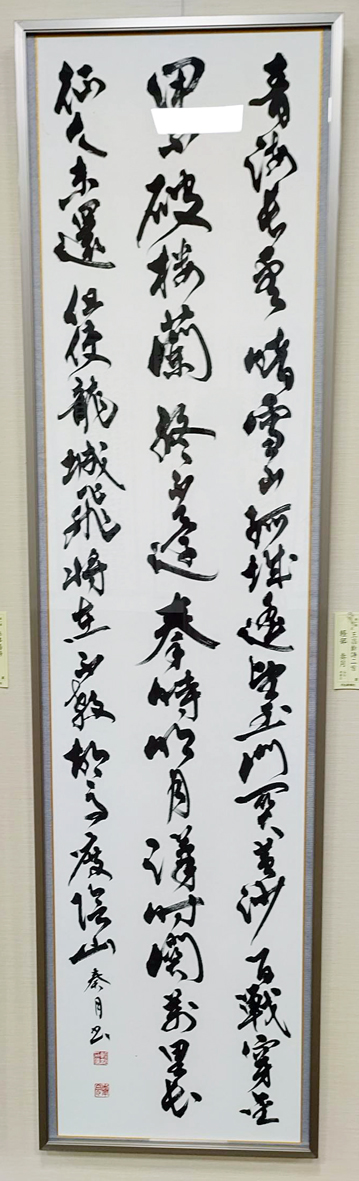 青海長雲暗雪山孤城遥望玉門関黄沙百戦穿金
甲不破楼蘭終不還秦時明月漢時関萬里長
征人未還但使龍城飛将在不教胡馬度陰山 泰月書
王昌齢詩二首